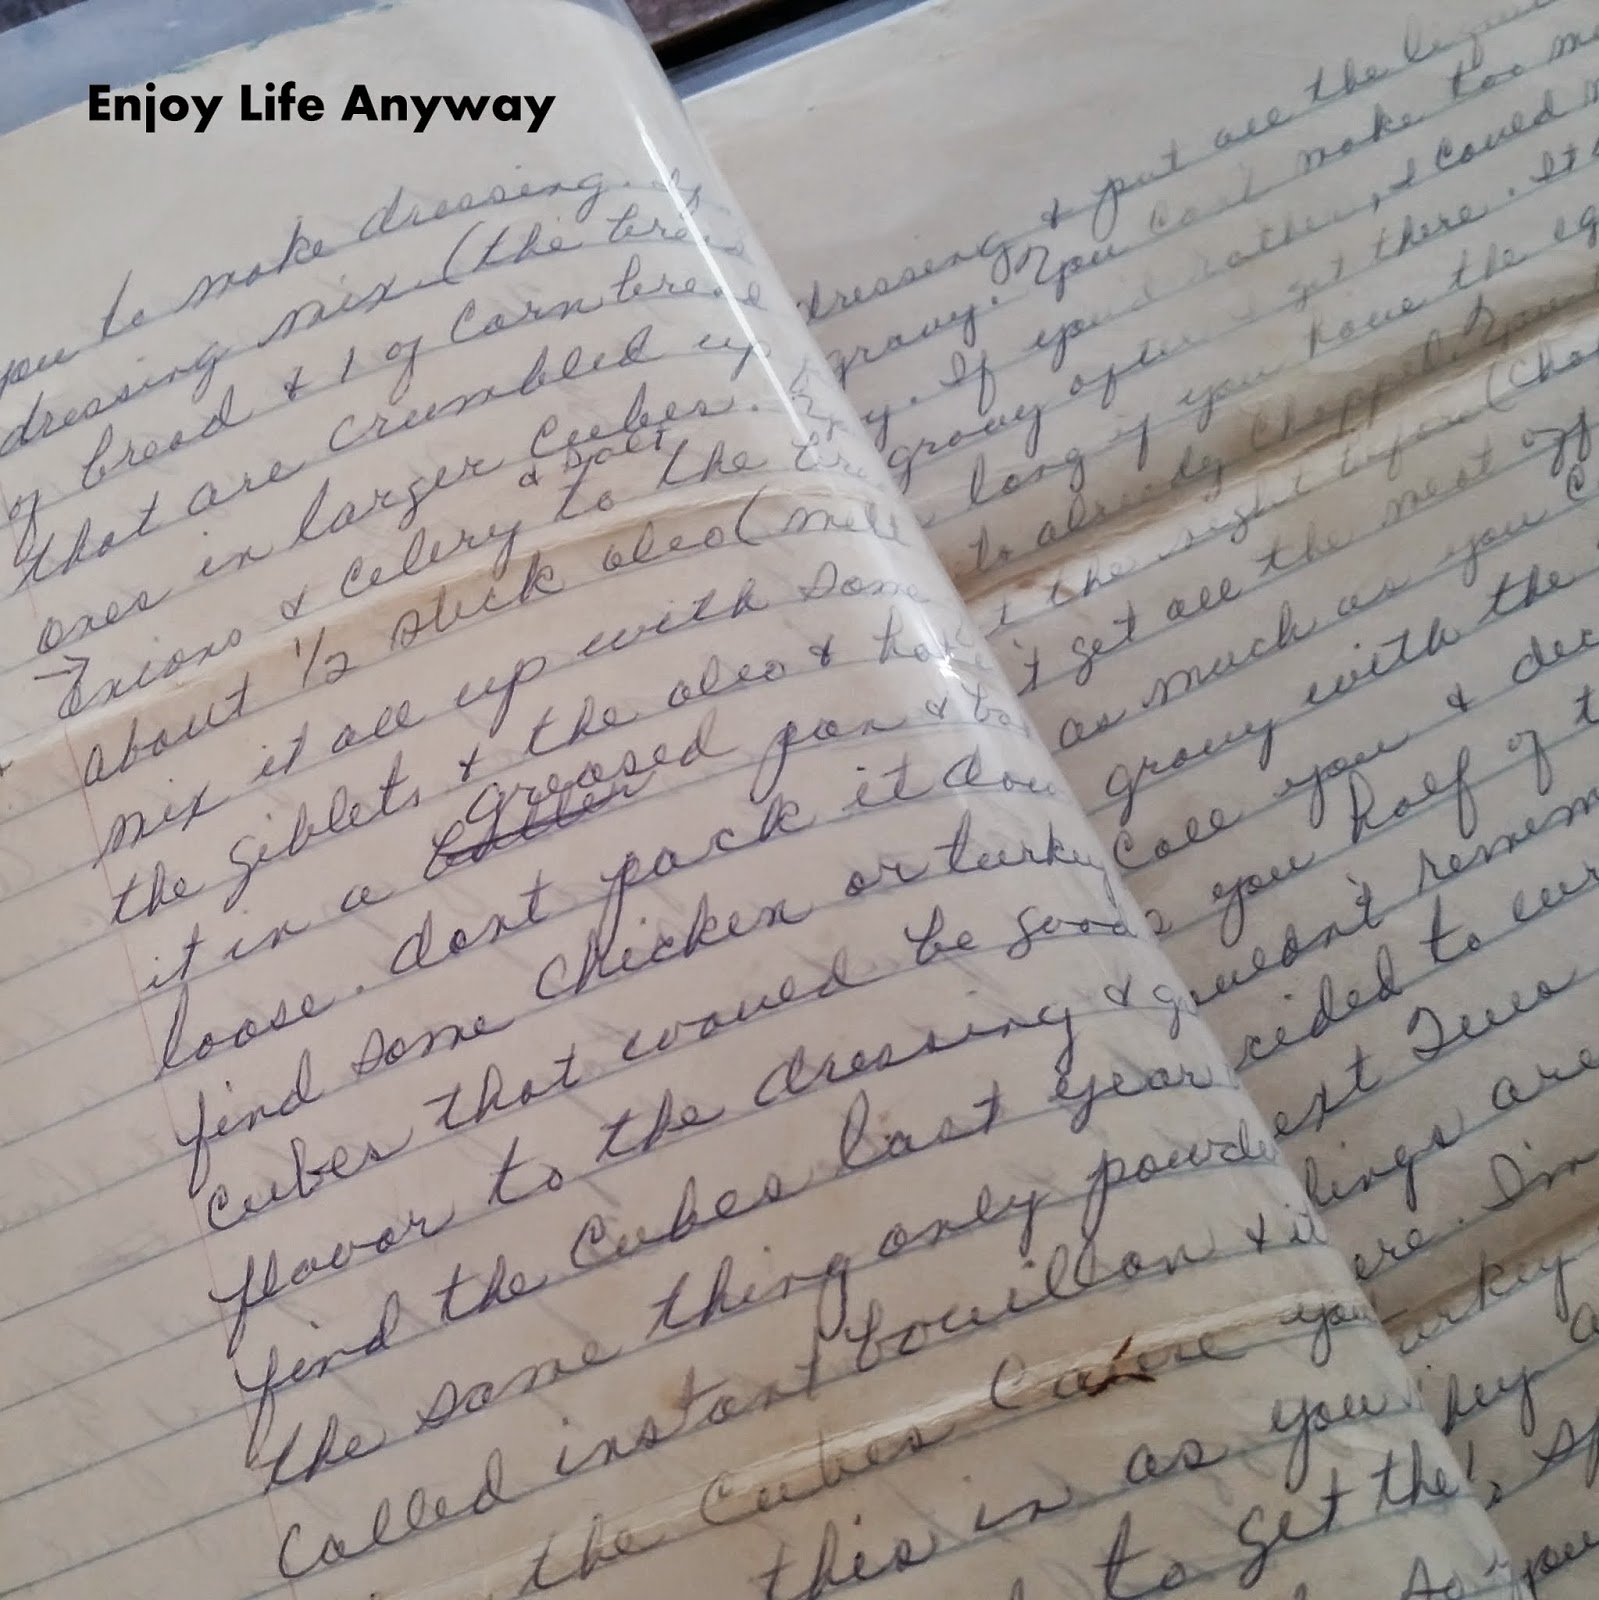 Enjoy Life Anyway
you to make dressing. If
dressing mix (the bread
of bread & 1 of cornbread
that are crumbled up
ones in larger cubes.
& salt
Onions & celery to the
about 1/2 stick oleo (melt
mix it all up with some
the giblets & the oleo &
greased
it in a butter pan &
loose. dont pack it down
find some chicken or turkey
cubes that would be good
flavor to the dressing & g
find the cubes last year
the same thing only powde
called instant bouillon & it
the cubes cause you
this in as you
to get the
dressing & put all the
gravy. You cant make too
If you'd rather, I could
gravy after I get there. It
long if you have the
to already chopped. You
the night before
get all the meat off
as much as you
gravy with the
call you &
you half of
wouldn't remem
cided to
est Tues
lings are
ere. I'm
urkey
hey
so you